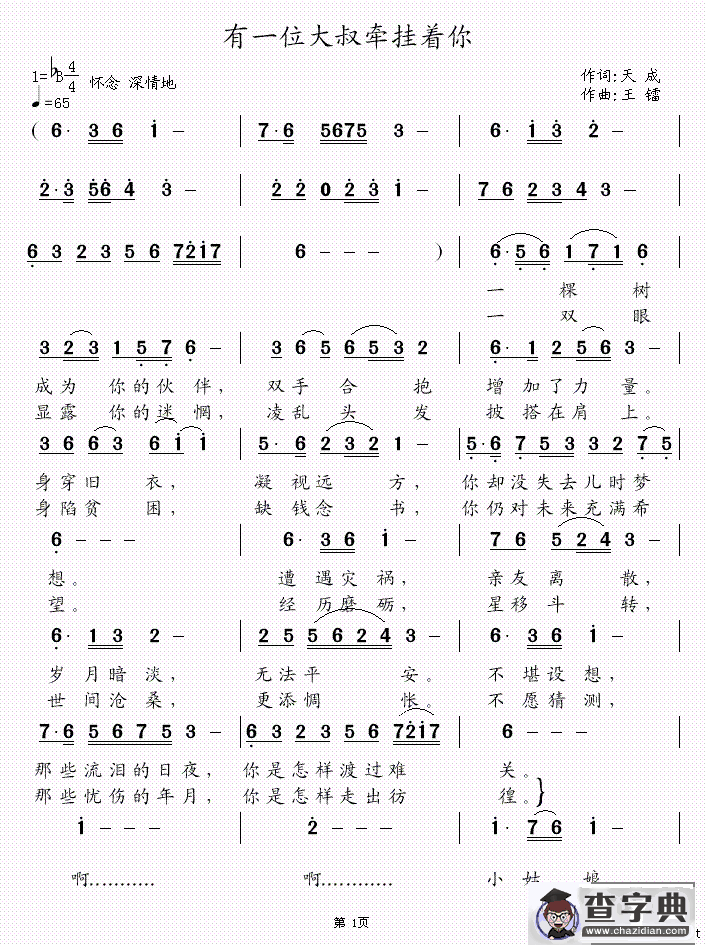 有一位大叔牵挂着你
1=♭B 4/4 怀念 深情地
♩=65
作词:天 成
作曲:王 镭
( 6· 3 6 i - | 7·6 5675 3 - | 6· i 3 2 - |
2·3 56 4 3 - | 2 2 0 2 3 1 - | 7 6 2 3 4 3 - |
6 3 2 3 5 6 7217 | 6 - - - ) | 6·5 6 1 7 1 6 |
一 棵 树
一 双 眼
3 2 3 1 5 7 6 - | 3 6 5 6 5 3 2 | 6· 1 2 5 6 3 - |
成为 你的伙 伴, 双手 合 抱 增 加了力 量。
显露 你的迷 惘, 凌乱 头 发 披 搭在肩 上。
3 6 6 3 6 i i - | 5· 6 2 3 2 1 - | 5·6 7 5 3 3 2 7 5 |
身穿旧 衣, 凝 视远 方, 你却没失去儿时梦
身陷贫 困, 缺 钱念 书, 你仍对未来充满希
6 - - - | 6· 3 6 i - | 7 6 5 2 4 3 - |
想。 遭 遇灾 祸, 亲友 离 散,
望。 经 历磨 砺, 星移 斗 转,
6· 1 3 2 - | 2 5 5 6 2 4 3 - | 6· 3 6 1 - |
岁 月暗 淡, 无法平 安。 不 堪设 想,
世 间沧 桑, 更添惆 怅。 不 愿猜 测,
7·6 5 6 7 5 3 - | 6 3 2 3 5 6 7217 | 6 - - - |
那些流泪的日夜, 你是怎样渡过难 关。
那些忧伤的年月, 你是怎样走出彷 徨。}
i - - - | 2 - - - | i· 7 6 i - |
啊........... 啊............ 小 姑 娘
第 1页
查字典
www.chazidian.com
t